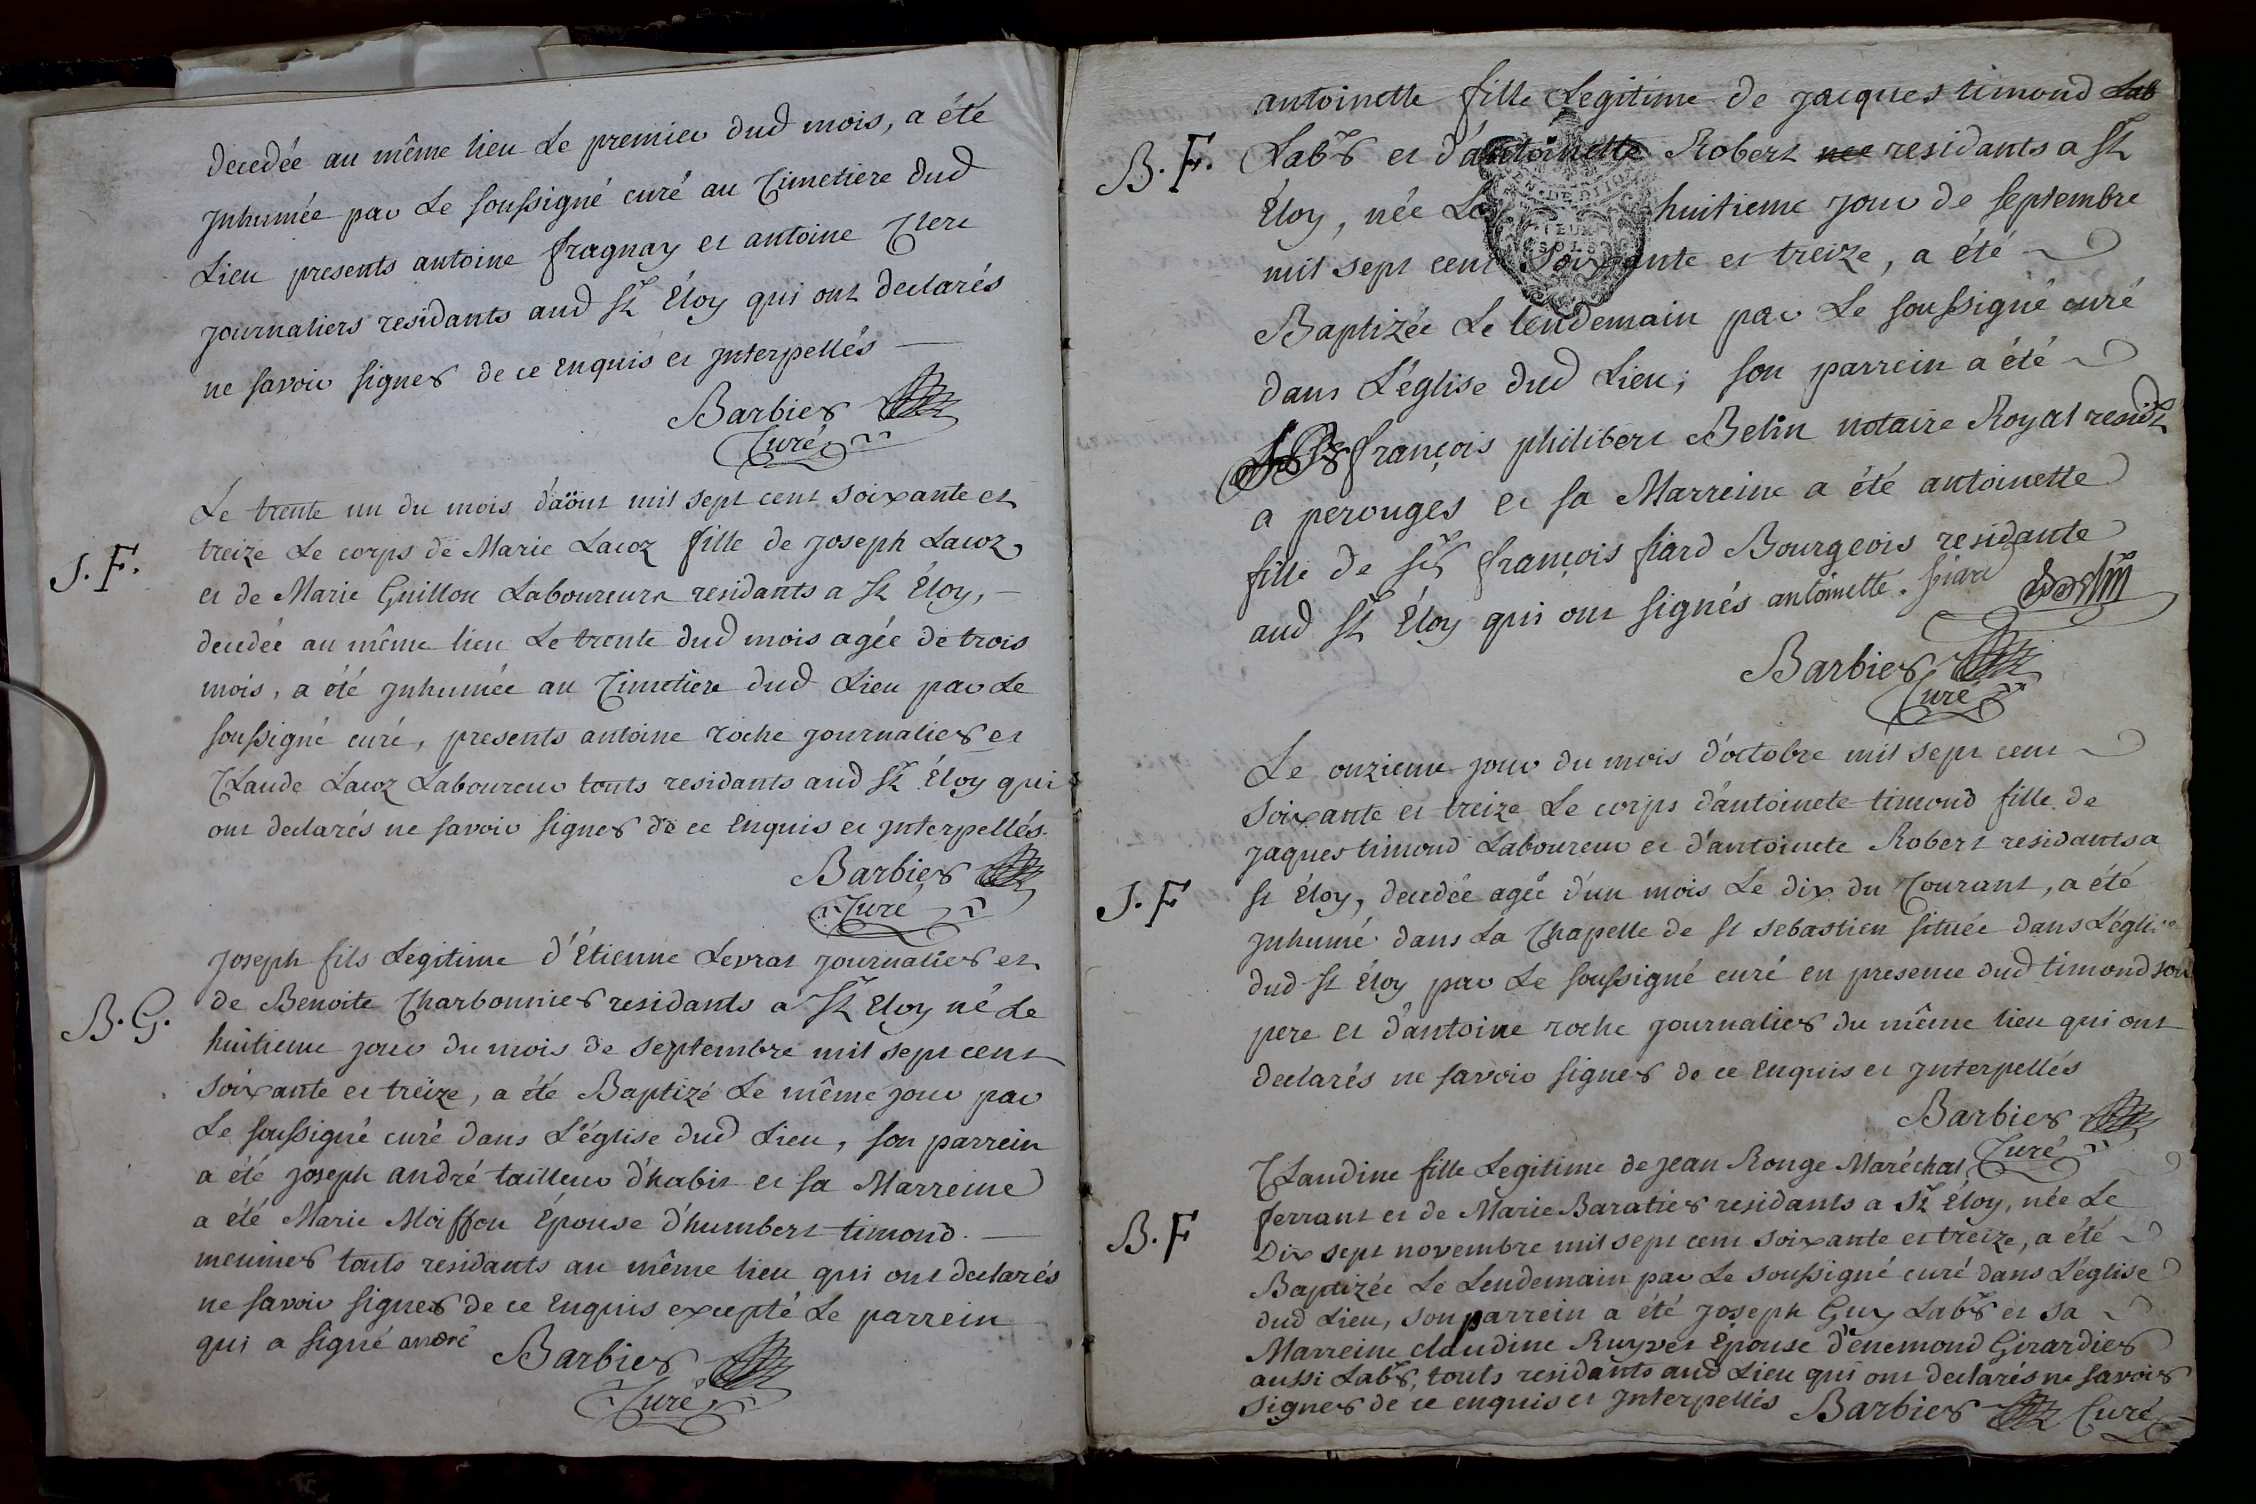 decedée au même lieu Le premier dud mois, a été
jnhumée par Le soussigné curé au Cimetiere dud
Lieu presents antoine fragnay et antoine Clerc
journaliers residants aud St Éloy qui ont declarés
ne savoir signer de ce enquis et jnterpellés
Barbier
Curé
Le trente un du mois d'aöut mil sept cent soixante et
treize Le corps de Marie Lacoz fille de joseph Lacoz
J. F.
et de Marie Guillon Laboureurs residants a St Éloy,
decedée au même lieu Le trente dud mois agée de trois
mois, a été jnhumée au Cimetiere dud Lieu par Le
soussigné curé, presents antoine roche journalier et
Claude Lacoz Laboureur touts residants aud St Éloy qui
ont declarés ne savoir signer de ce enquis et jnterpellés.
Barbier
Curé
joseph fils Legitime d'Étienne Levrat journalier et
B. G.
de Benoite Charbonnier residants a St Eloy né Le
huitieme jour du mois de septembre mil sept cent
soixante et treize, a été Baptizé Le même jour par
Le soussigné curé dans L'église dud Lieu, son parrein
a été joseph andré tailleur d'habit et sa Marreine
a été Marie Moiffon Épouse d'humbert timond.
meunier touts residants au même lieu qui ont declarés
ne savoir signer de ce enquis excepté Le parrein
qui a signé andré
Barbier
Curé
antoinette fille Legitime de jacques timond Lab
B. F.
Labr et d'antoinette Robert nee residants a St
Éloy, née Le huitieme jour de septembre
mil sept cent soixante et treize, a été
DEUX
SOLS
Baptizée Le lendemain par Le soussigné curé
dans L'église dud Lieu; son parrein a été
françois philibert Belin notaire Royal residt
a perouges et sa Marreine a été antoinette
fille de sr françois fiard Bourgeois residante
aud St Éloy qui ont signés antoinette. fiard Belin
Barbier
Curé
Le onzieme jour du mois d'octobre mil sept cent
soixante et treize Le corps d'antoinete timond fille de
jaques timond Laboureur et d'antoinete Robert residants a
J. F
St Éloy, decedée agée d'un mois Le dix du Courant, a été
jnhumé dans La Chapelle de St sebastien située dans L'église
dud St Éloy par Le soussigné curé en presence dud timond son
pere et d'antoine roche journalier du même lieu qui ont
declarés ne savoir signer de ce enquis et jnterpellés
Barbier
Curé
Claudine fille Legitime de jean Rouge Maréchal
ferrant et de Marie Baratier residants a St Éloy, née Le
B. F
Dix sept novembre mil sept cent soixante et treize, a été
Baptizée Le Lendemain par Le soussigné curé dans L'église
dud Lieu, son parrein a été joseph Guy Labr et sa
Marreine claudine Ruyvet Épouse d'enemond Girardier
aussi Labr, touts residants aud Lieu qui ont declarés ne savoir
signer de ce enquis et jnterpellés Barbier Curé